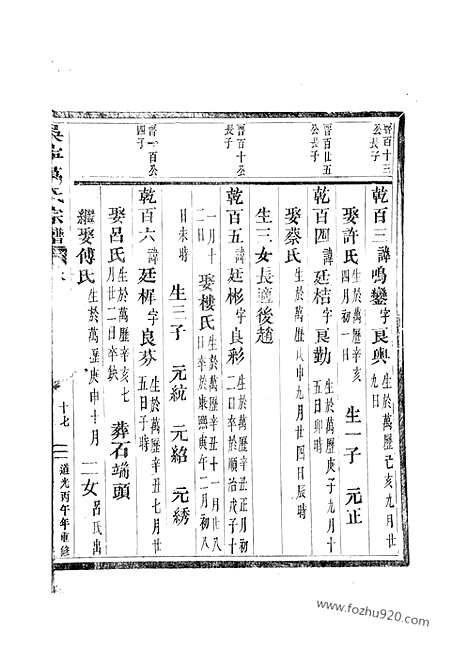 晋百十三公長子
乾百三諱鳴鑾字良輿生於萬歷己亥九月廿九日
娶許氏生於萬歷辛亥四月初一日 生一子 元正
晋百廿五公長子
乾百四諱廷桔字良勤生於萬歷庚子九月十五日卯時
娶蔡氏生於萬歷庚申九月廿四日辰時
生三女長適後趙
晋百十公長子
乾百五諱廷彬字良彩生於萬歷辛丑正月初二日卒於順治戊子十一月十二日
娶樓氏生於萬歷辛丑十一月廿八日卒於康熙庚午二月初八日未時 生三子 元統 元紹 元綉
晋一百公四子
乾百六諱廷樨字良芬生於萬歷辛丑七月廿五日子時
娶呂氏生於萬歷辛亥七月廿二日卒缺 葬石端頭
繼娶傅氏生於萬歷庚申十月 二女呂氏出
氏宗譜
十七
道光丙午年重修
www.fozhu920.com